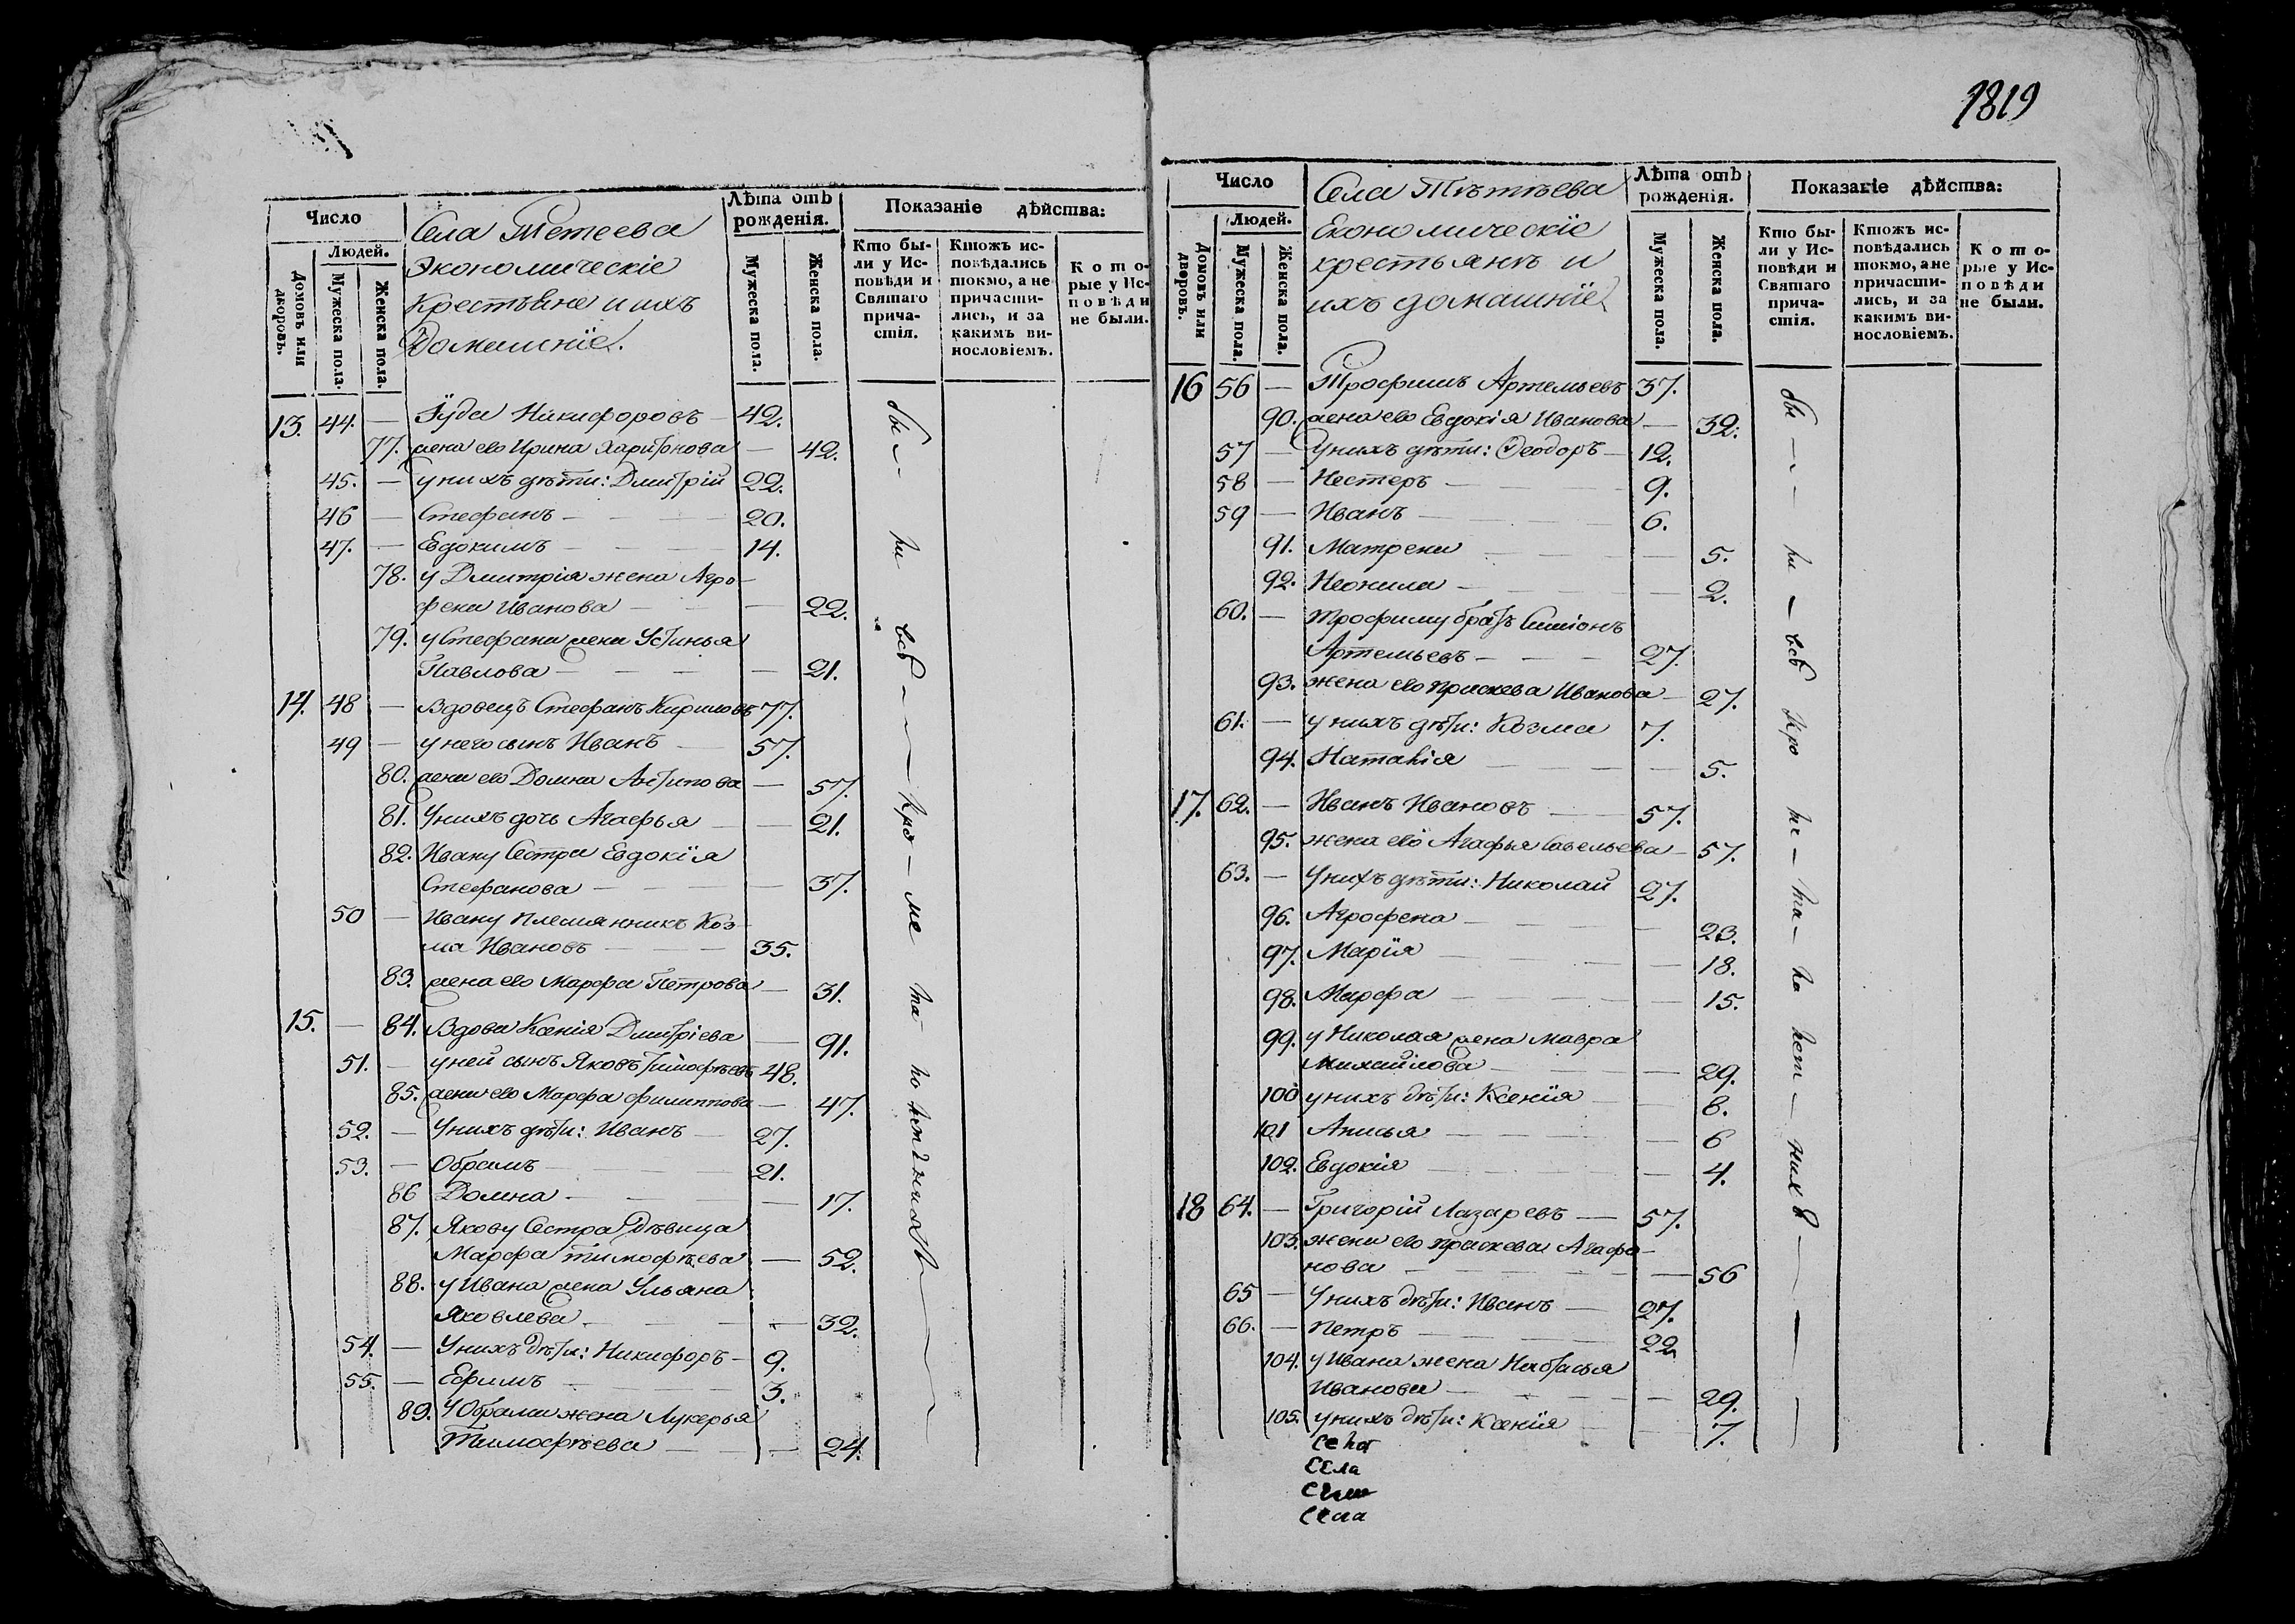 1819
Число
Людей.
Домовъ или дворовъ.
Мужеска пола.
Женска пола.
Села Тетеева
Экономическіе
Крестьяне и ихъ
Домашніе.
Лѣта отъ рожденія.
Мужеска пола.
Женска пола.
Показаніе дѣйства:
Кто бы-
ли у Ис-
повѣди и
Святаго
прича-
стія.
Ктожъ ис-
повѣдались
токмо, а не
причасти-
лись, и за
какимъ ви-
нословіемъ.
Кото-
рые у Ис-
повѣди
не были.
13. 44. — Іуда Никифоровъ — 42.
77. жена ево Ирина Харитонова — 42.
45. — у нихъ дѣти: Дмитрій 22.
46 — Стефанъ — 20.
47. — Евдокимъ — 14.
78. у Дмитрія жена Агро-
фена Иванова — 22.
79. у Стефана жена Устинья
Павлова — 21.
14. 48 — Вдовецъ Стефанъ Кириловъ 77.
49 — у него сынъ Иванъ — 57.
80. жена ево Домна Антипова — 57.
81. У нихъ дочь Агафья — 21.
82. Ивану Сестра Евдокїя
Стефанова — 37.
50 — Ивану племянникъ Коз-
ма Ивановъ — 35.
83. жена ево Марфа Петрова — 31.
15. — 84. Вдова Ксенія Дмитріева — 91.
51. — у ней сынъ Яковъ Тимофѣевъ 48.
85. жена ево Марфа Филиппова — 47.
52. — У нихъ дѣти: Иванъ — 27.
53. — Обрамъ — 21.
86 Домна — 17.
87. Якову Сестра дѣвица
Марфа Тимофѣева — 52.
88. у Ивана жена Ульяна
Яковлева — 32.
54. — У нихъ дѣти: Никифоръ — 9.
55. — Ефимъ — 3.
89. У Обрама жена Лукерья
Тимофѣева — 24.
бы — ли всѣ — кро — ме
Число
Людей.
Домовъ или дворовъ.
Мужеска пола.
Женска пола.
Села Тѣтѣева
Економическїе
крестьянѣ и
ихъ домашнїе
Лѣта отъ рожденія.
Мужеска пола.
Женска пола.
Показаніе дѣйства:
Кто бы-
ли у Ис-
повѣди и
Святаго
прича-
стія.
Ктожъ ис-
повѣдались
токмо, а не
причасти-
лись, и за
какимъ ви-
нословіемъ.
Кото-
рые у Ис-
повѣди
не были.
16 56 — Трофимъ Артемьевъ 37.
90. жена ево Евдокія Иванова — 32.
57 — У нихъ дѣти: Ѳеодоръ — 12.
58 — Нестеръ — 9.
59 — Иванъ — 6.
91. Матрена — 5.
92. Неонила — 2.
60. — Трофиму братъ Симіонъ
Артемьевъ — 27.
93. жена ево Прасκева Иванова — 27.
61. — у нихъ дѣти: Козма 7.
94. Наталія — 5.
17. 62. — Иванъ Ивановъ — 57.
95. жена ево Агафья Савельева — 57.
63. — У нихъ дѣти: Николай 27.
96. Агрофена — 23.
97. Марїя — 18.
98. Марфа — 15.
99. у Николая жена Мавра
Михайлова — 29.
100 у нихъ дѣти: Ксенїя — 8.
101 Анисья — 6
102. Евдокія — 4.
18 64. — Григорій Лазаревъ — 57.
103. жена ево Праскева Агафо-
нова — 56
65 — У нихъ дѣти: Иванъ — 27.
66. — Петръ — 22
104. у Ивана жена Настасья
Иванова — 29.
105. у нихъ дѣти: Ксенїя — 7.
бы — ли — всѣ кро
Села
Села